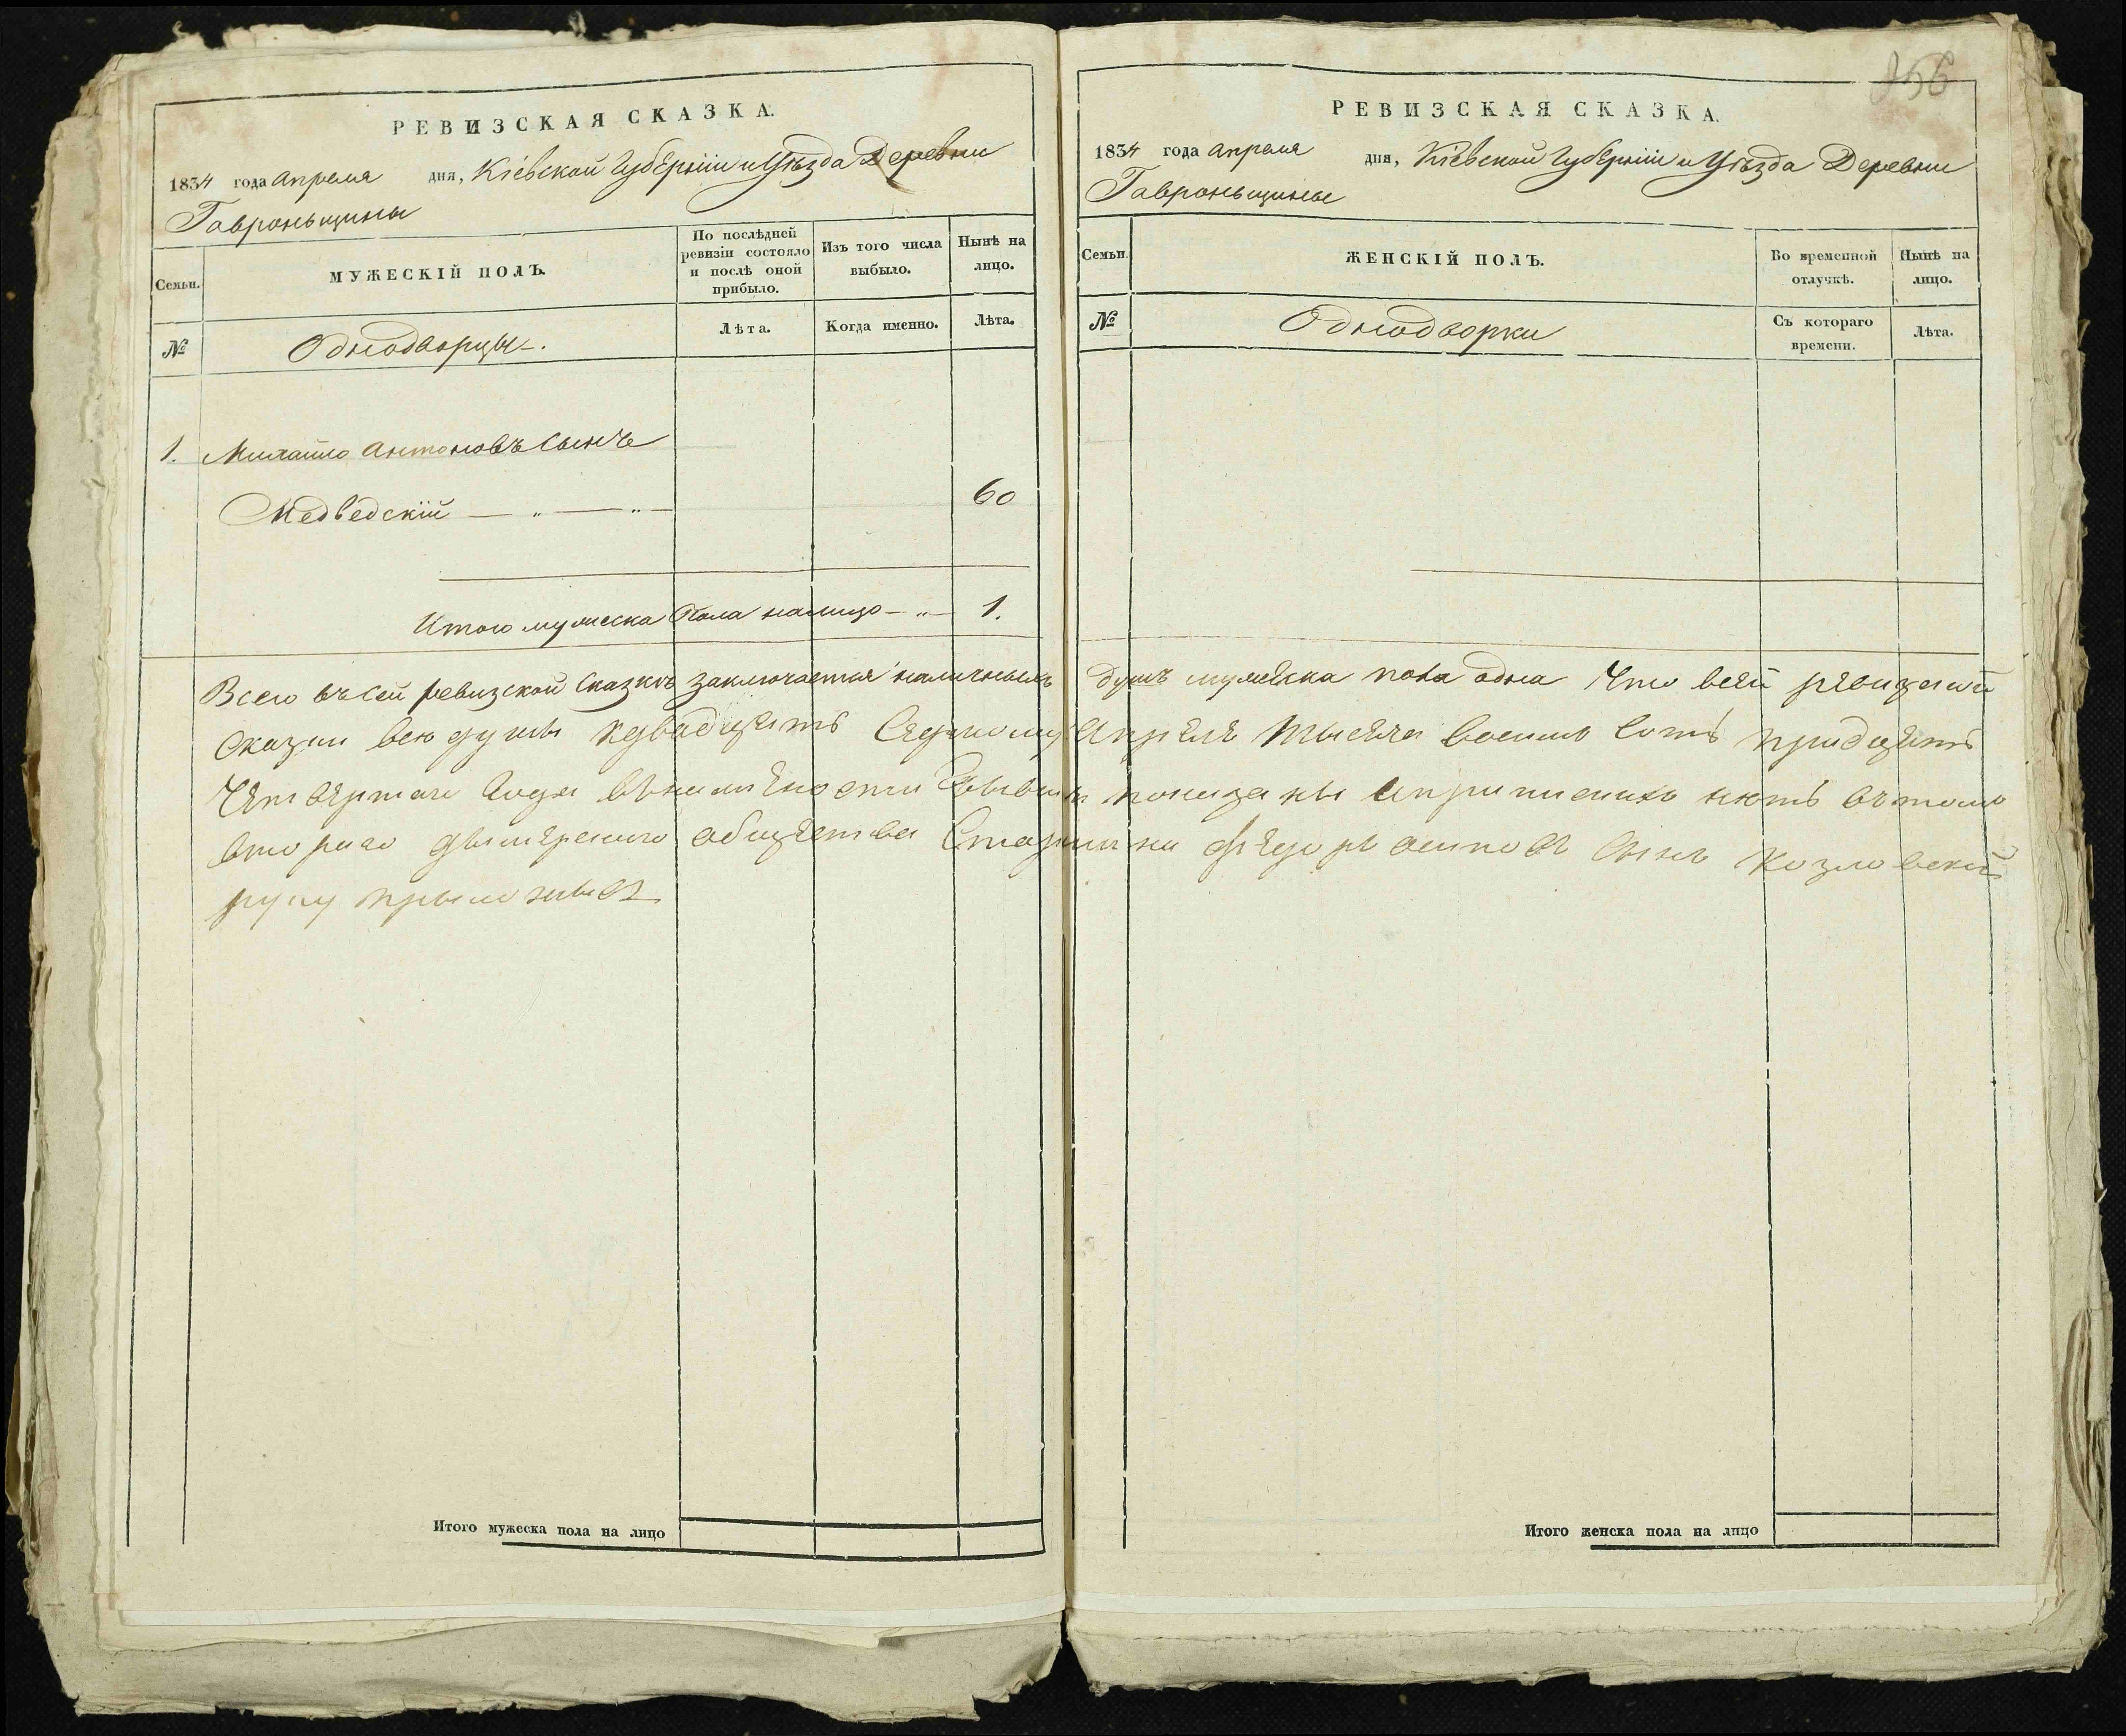 956
РЕВИЗСКАЯ СКАЗКА.
1834 года апреля дня, Кіевской Губерніи и Уѣзда Деревни
Гавроньщины
Семьи.
МУЖЕСКІЙ ПОЛЪ.
По послѣдней ревизіи состояло и послѣ оной прибыло.
Изъ того числа выбыло.
Нынѣ на лицо.
№
Однодворцы.
Лѣта.
Когда именно.
Лѣта.
1. Михайло Антоновъ Сынъ
Медведскій — „ — „ — 60
Итого мужеска Пола налицо — „ — 1.
РЕВИЗСКАЯ СКАЗКА.
1834 года апреля дня, Кіевской Губерніи и Уѣзда Деревни
Гавроньщины
Семьи.
ЖЕНСКІЙ ПОЛЪ.
Во временной отлучкѣ.
Нынѣ на лицо.
№
Однодворки
Съ котораго времени.
Лѣта.
Всего въ сей ревизской Сказкѣ заключается наличныхъ душъ мужеска пола одна Что всей ревизской
Сказки всю душы кдвадцеть Седмому Апрѣля тысеча восимъ сотъ тридцеть
Четвертаго Года показаны нѣтъ втомъ
втораго общества Федоръ осиповъ Сынъ Козловскій
руку
Итого мужеска пола на лицо
Итого женска пола на лицо